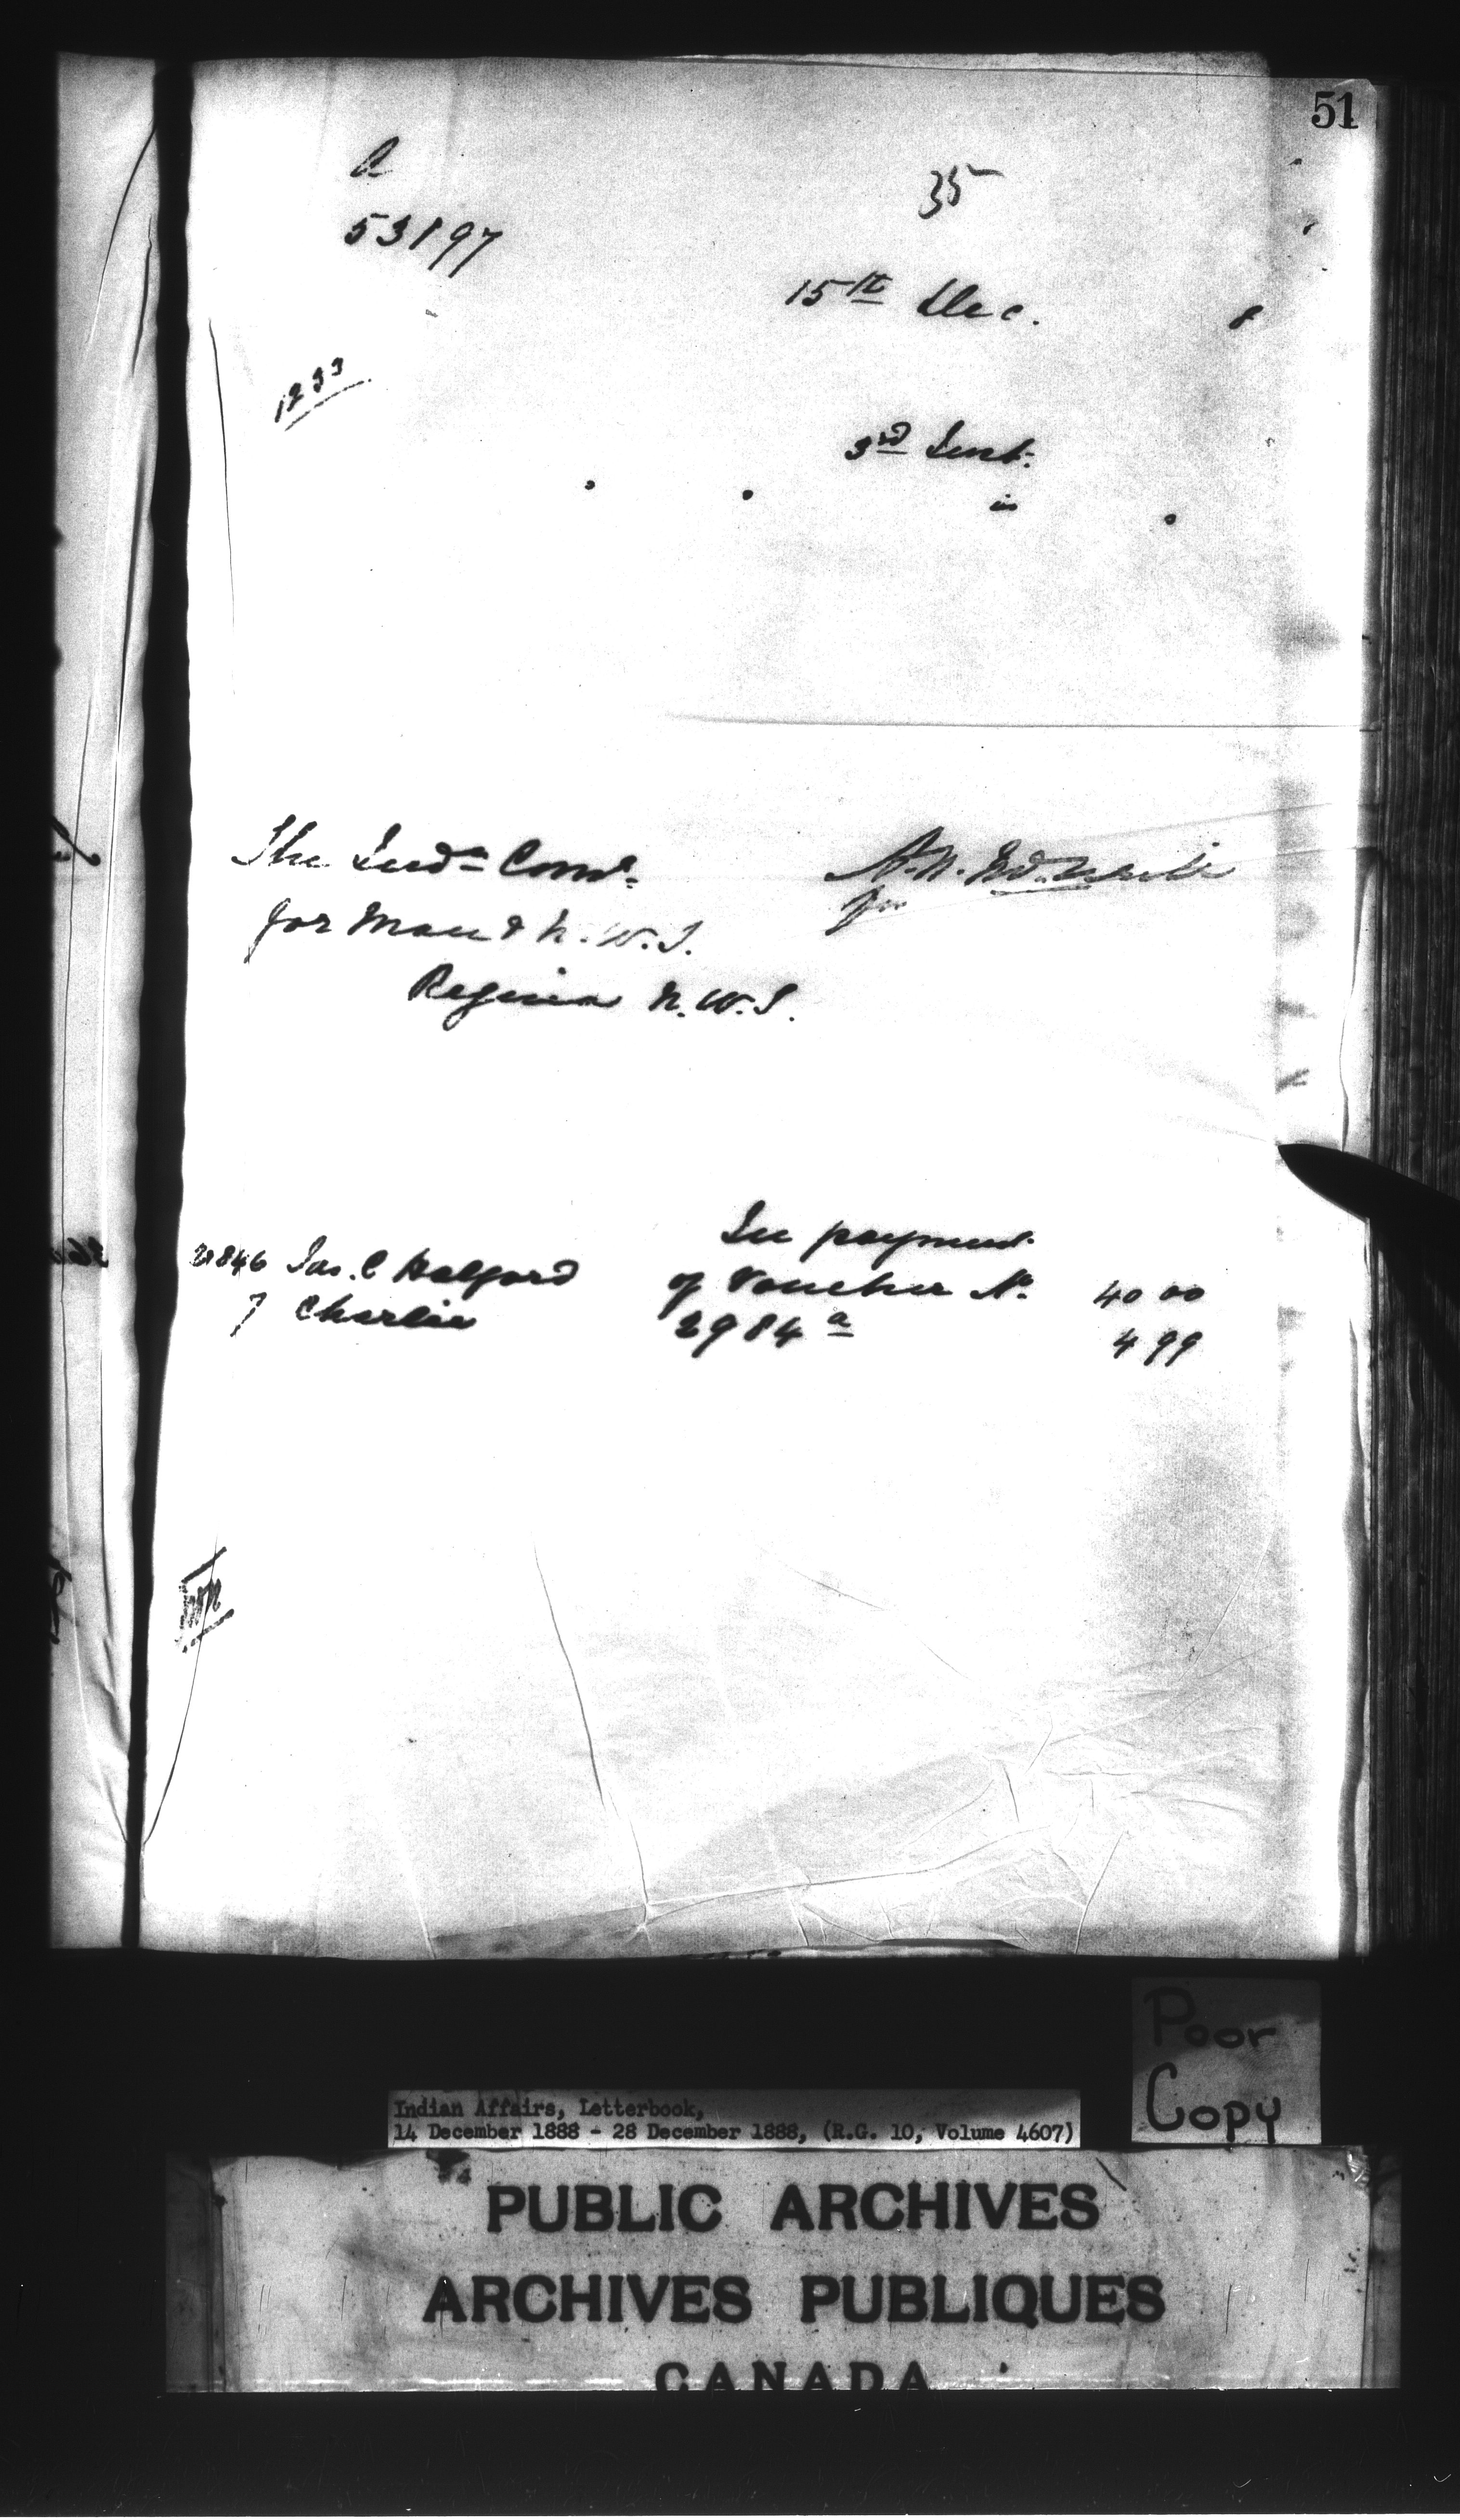 51
A
35
53197
15th Dec. 8
1233
3rd Inst.
in
The Indn Comr.
for Man & N.W.T.
Regina N.W.T.
In payment
846 Jas. C Halford of Voucher No. 40 00
7 Charlie 2984a 4 99
Poor
Copy
Indian Affairs, Letterbook,
14 December 1888 - 28 December 1888, (R.G. 10, Volume 4607)
PUBLIC ARCHIVES
ARCHIVES PUBLIQUES
CANADA